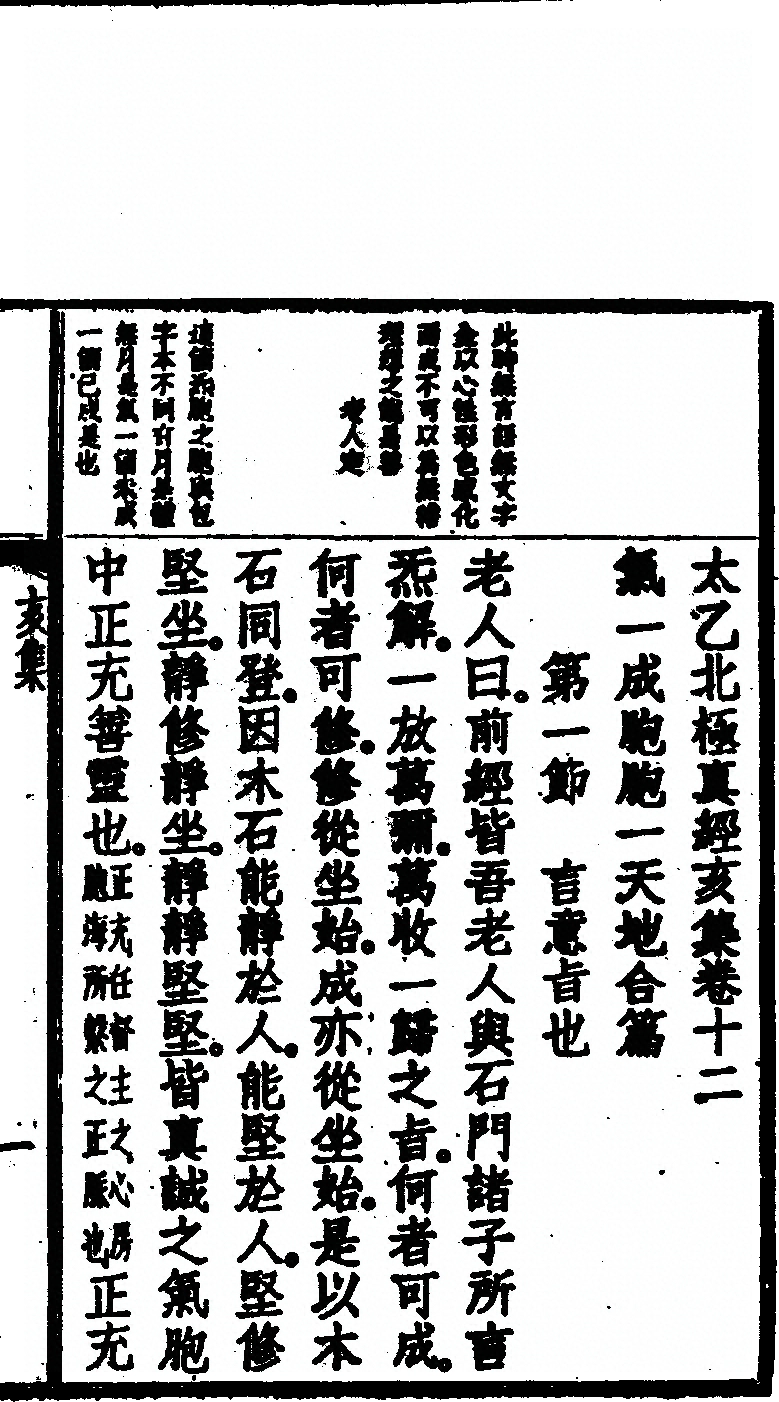 太乙北極真經亥集卷十二
氣一成胞胞一天地合篇
第一節　言意旨也
老人曰。前經皆吾老人與石門諸子所言
炁解。一放萬彌。萬收一歸之旨。何者可成。
何者可修。修從坐始。成亦從坐始。是以木
石同登。因木石能靜於人。能堅於人。堅修
堅坐。靜修靜坐。靜靜堅堅。皆真誠之氣胞
中正充善靈也。正充任督主之心房胞海所繫之正脈也正充
此時無言語無文字
全以心性形色感化
而成不可以為無稽
理想之龍是善
老人定
這個炁胞之胞與包
字本不同有月是體
無月是氣一個未成
一個已成是也
亥集
一